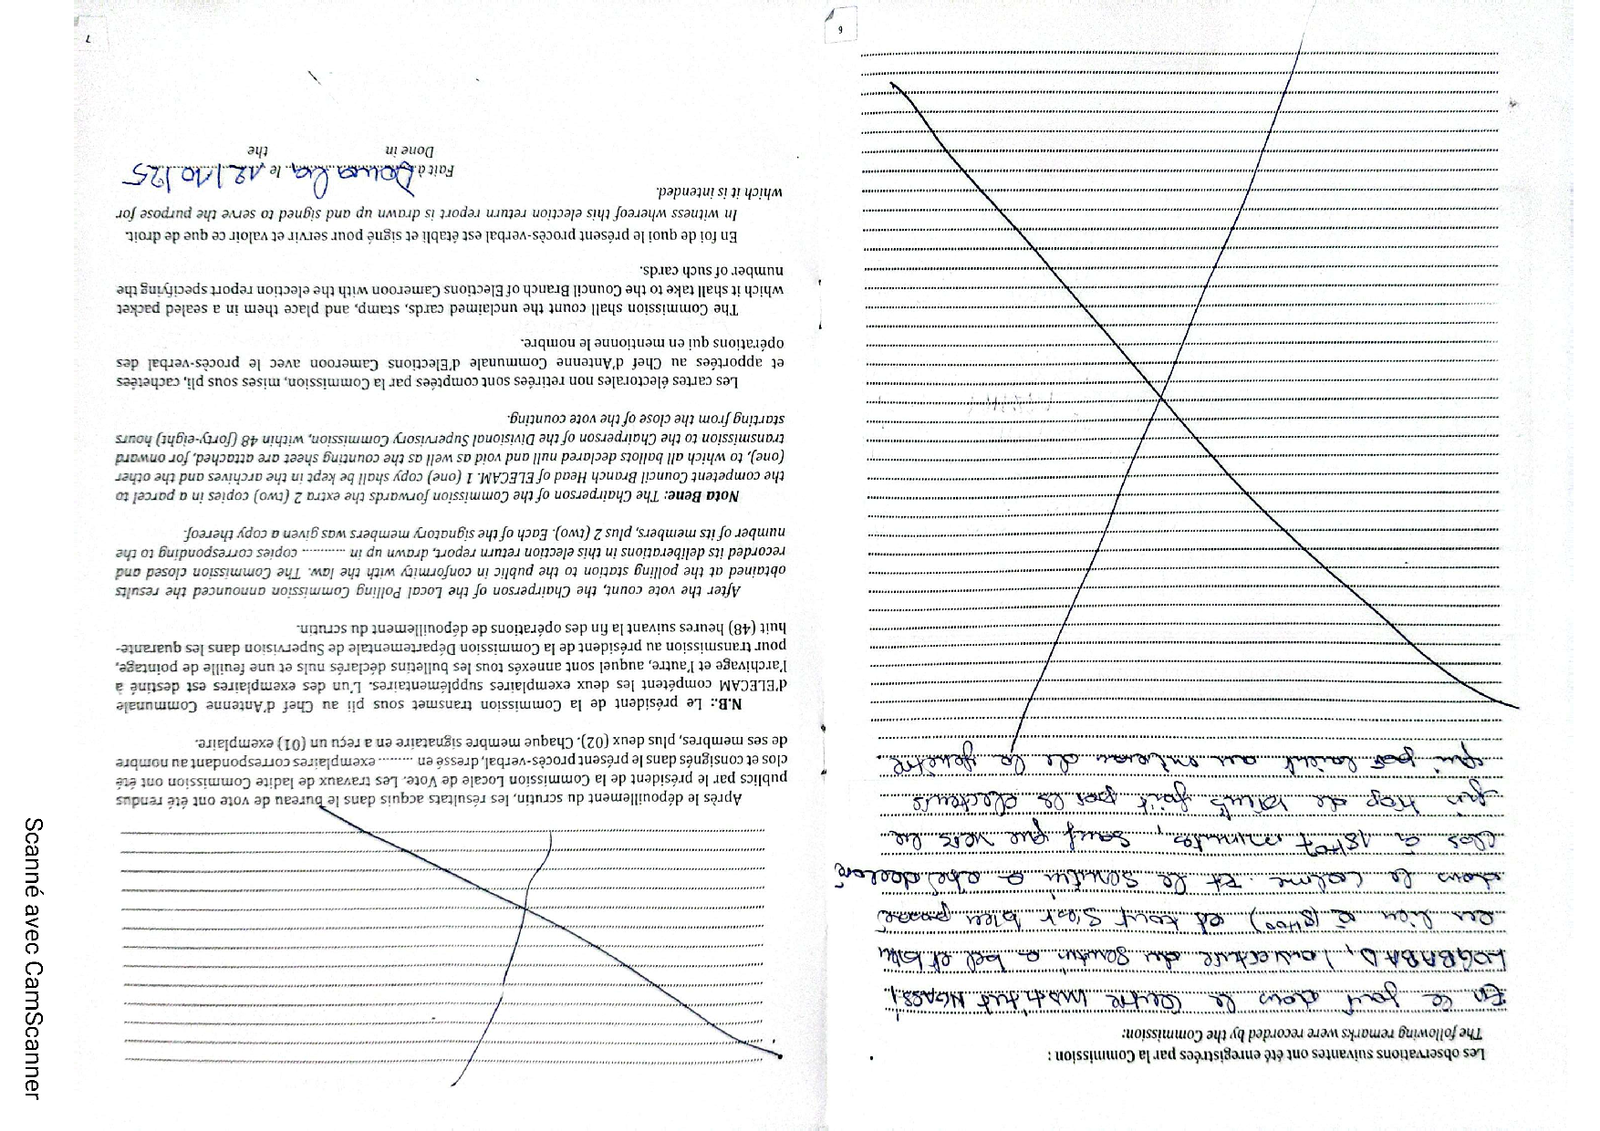 Les observations suivantes ont été enregistrées par la Commission :
The following remarks were recorded by the Commission:
En ce jour dans le Centre Institut
LOGBABA D, l'ouverture du scrutin a bel et bien
eu lieu à (8H00) et tout s'est bien passé
dans le calme. Et le scrutin a été déclaré
clos à 18H07 minutes, sauf que vers la
fin trop de bruits fait par les électeurs
qui au de la fenêtre
6
Après le dépouillement du scrutin, les résultats acquis dans le bureau de vote ont été rendus
publics par le président de la Commission Locale de Vote. Les travaux de ladite Commission ont été
clos et consignés dans le présent procès-verbal, dressé en .......... exemplaires correspondant au nombre
de ses membres, plus deux (02). Chaque membre signataire en a reçu un (01) exemplaire.
N.B.: Le président de la Commission transmet sous pli au Chef d'Antenne Communale
d'ELECAM compétent les deux exemplaires supplémentaires. L'un des exemplaires est destiné à
l'archivage et l'autre, auquel sont annexés tous les bulletins déclarés nuls et une feuille de pointage,
pour transmission au président de la Commission Départementale de Supervision dans les quarante-
huit (48) heures suivant la fin des opérations de dépouillement du scrutin.
After the vote count, the Chairperson of the Local Polling Commission announced the results
obtained at the polling station to the public in conformity with the law. The Commission closed and
recorded its deliberations in this election return report, drawn up in .......... copies corresponding to the
number of its members, plus 2 (two). Each of the signatory members was given a copy thereof.
Nota Bene: The Chairperson of the Commission forwards the extra 2 (two) copies in a parcel to
the competent Council Branch Head of ELECAM. 1 (one) copy shall be kept in the archives and the other
(one), to which all ballots declared null and void as well as the counting sheet are attached, for onward
transmission to the Chairperson of the Divisional Supervisory Commission, within 48 (forty-eight) hours
starting from the close of the vote counting.
Les cartes électorales non retirées sont comptées par la Commission, mises sous pli, cachetées
et apportées au Chef d'Antenne Communale d'Elections Cameroon avec le procès-verbal des
opérations qui en mentionne le nombre.
The Commission shall count the unclaimed cards, stamp, and place them in a sealed packet
which it shall take to the Council Branch of Elections Cameroon with the election report specifying the
number of such cards.
En foi de quoi le présent procès-verbal est établi et signé pour servir et valoir ce que de droit.
In witness whereof this election return report is drawn up and signed to serve the purpose for
which it is intended.
Fait à Douala, le 12/10/25
Done in the
7
Scanné avec CamScanner